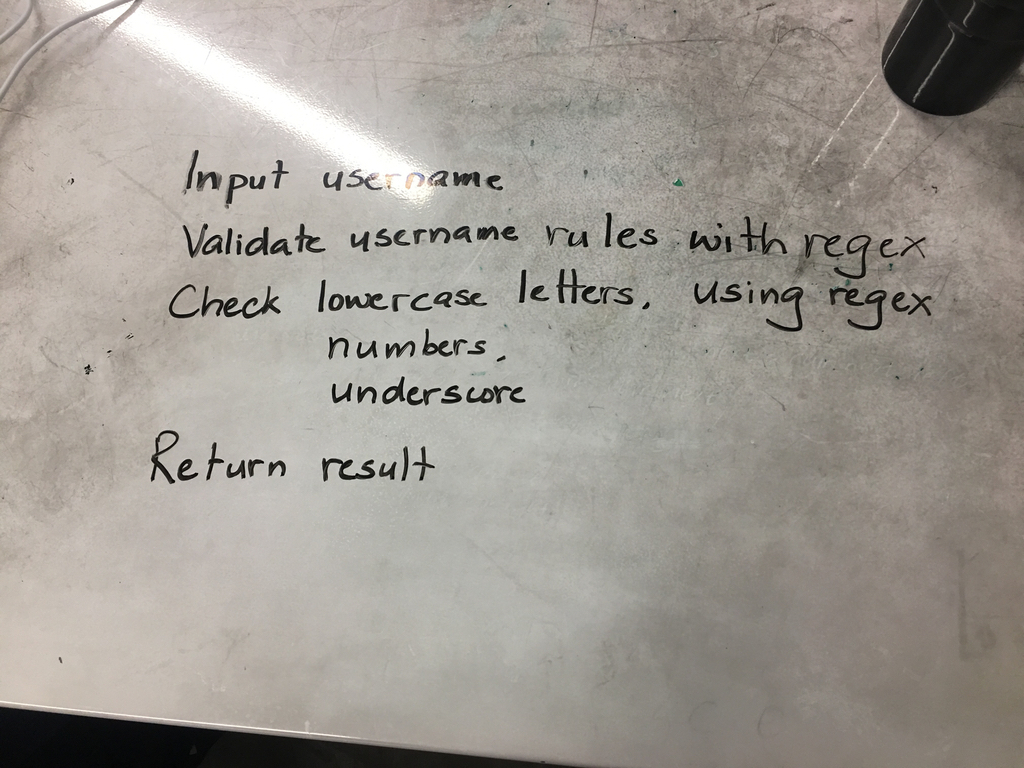 Input username
Validate username rules with regex
Check lowercase letters, using regex
numbers,
underscore
Return result